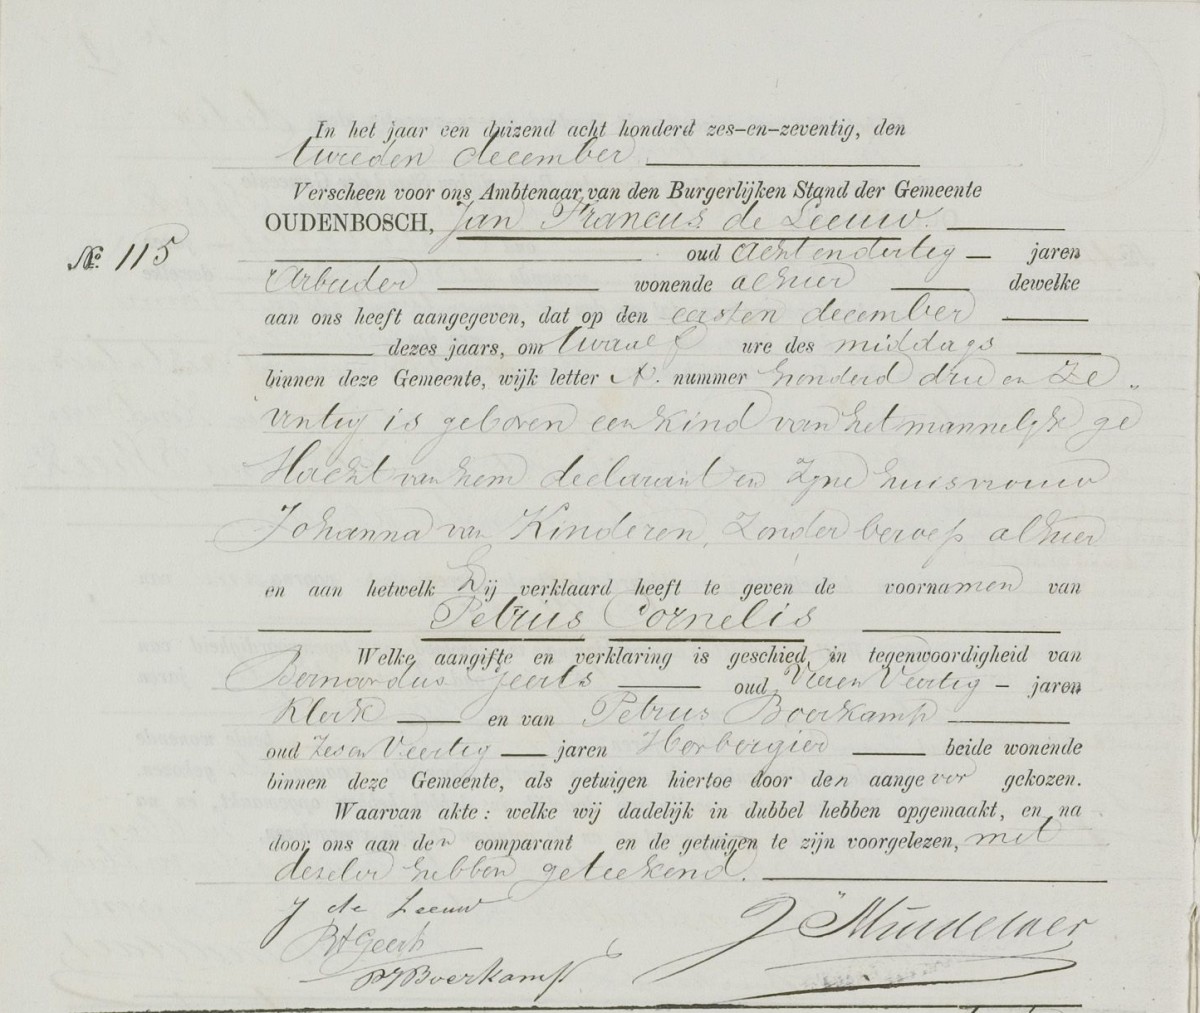 In het jaar een duizend acht honderd zes-en-zeventig, den
tweeden december
Verscheen voor ons Ambtenaar van den Burgerlijken Stand der Gemeente
OUDENBOSCH, Jan Francus de Leeuw.
No. 115
oud achtendertig jaren
Arbeider wonende alhier dewelke
aan ons heeft aangegeven, dat op den eersten december
dezes jaars, om twaalf ure des middags
binnen deze Gemeente, wijk letter A. nummer honderd drie en ze„
ventig is geboren een kind van het mannelijk ge
slacht van hem declarant en zyne huisvrouw
Johanna van Kinderen, zonder beroep alhier
en aan hetwelk hij verklaard heeft te geven de voornamen van
Petrus Cornelis
Welke aangifte en verklaring is geschied, in tegenwoordigheid van
Bernardus Geerts oud Vier en Veertig jaren
Klerk en van Petrus Boerkamp
oud Zes en Veertig jaren Herbergier beide wonende
binnen deze Gemeente, als getuigen hiertoe door den aangever gekozen.
Waarvan akte: welke wij dadelijk in dubbel hebben opgemaakt, en na
door ons aan den comparant en de getuigen te zijn voorgelezen, met
dezelve hebben geteekend.
J de Leeuw
Geerts
P J Boerkamp